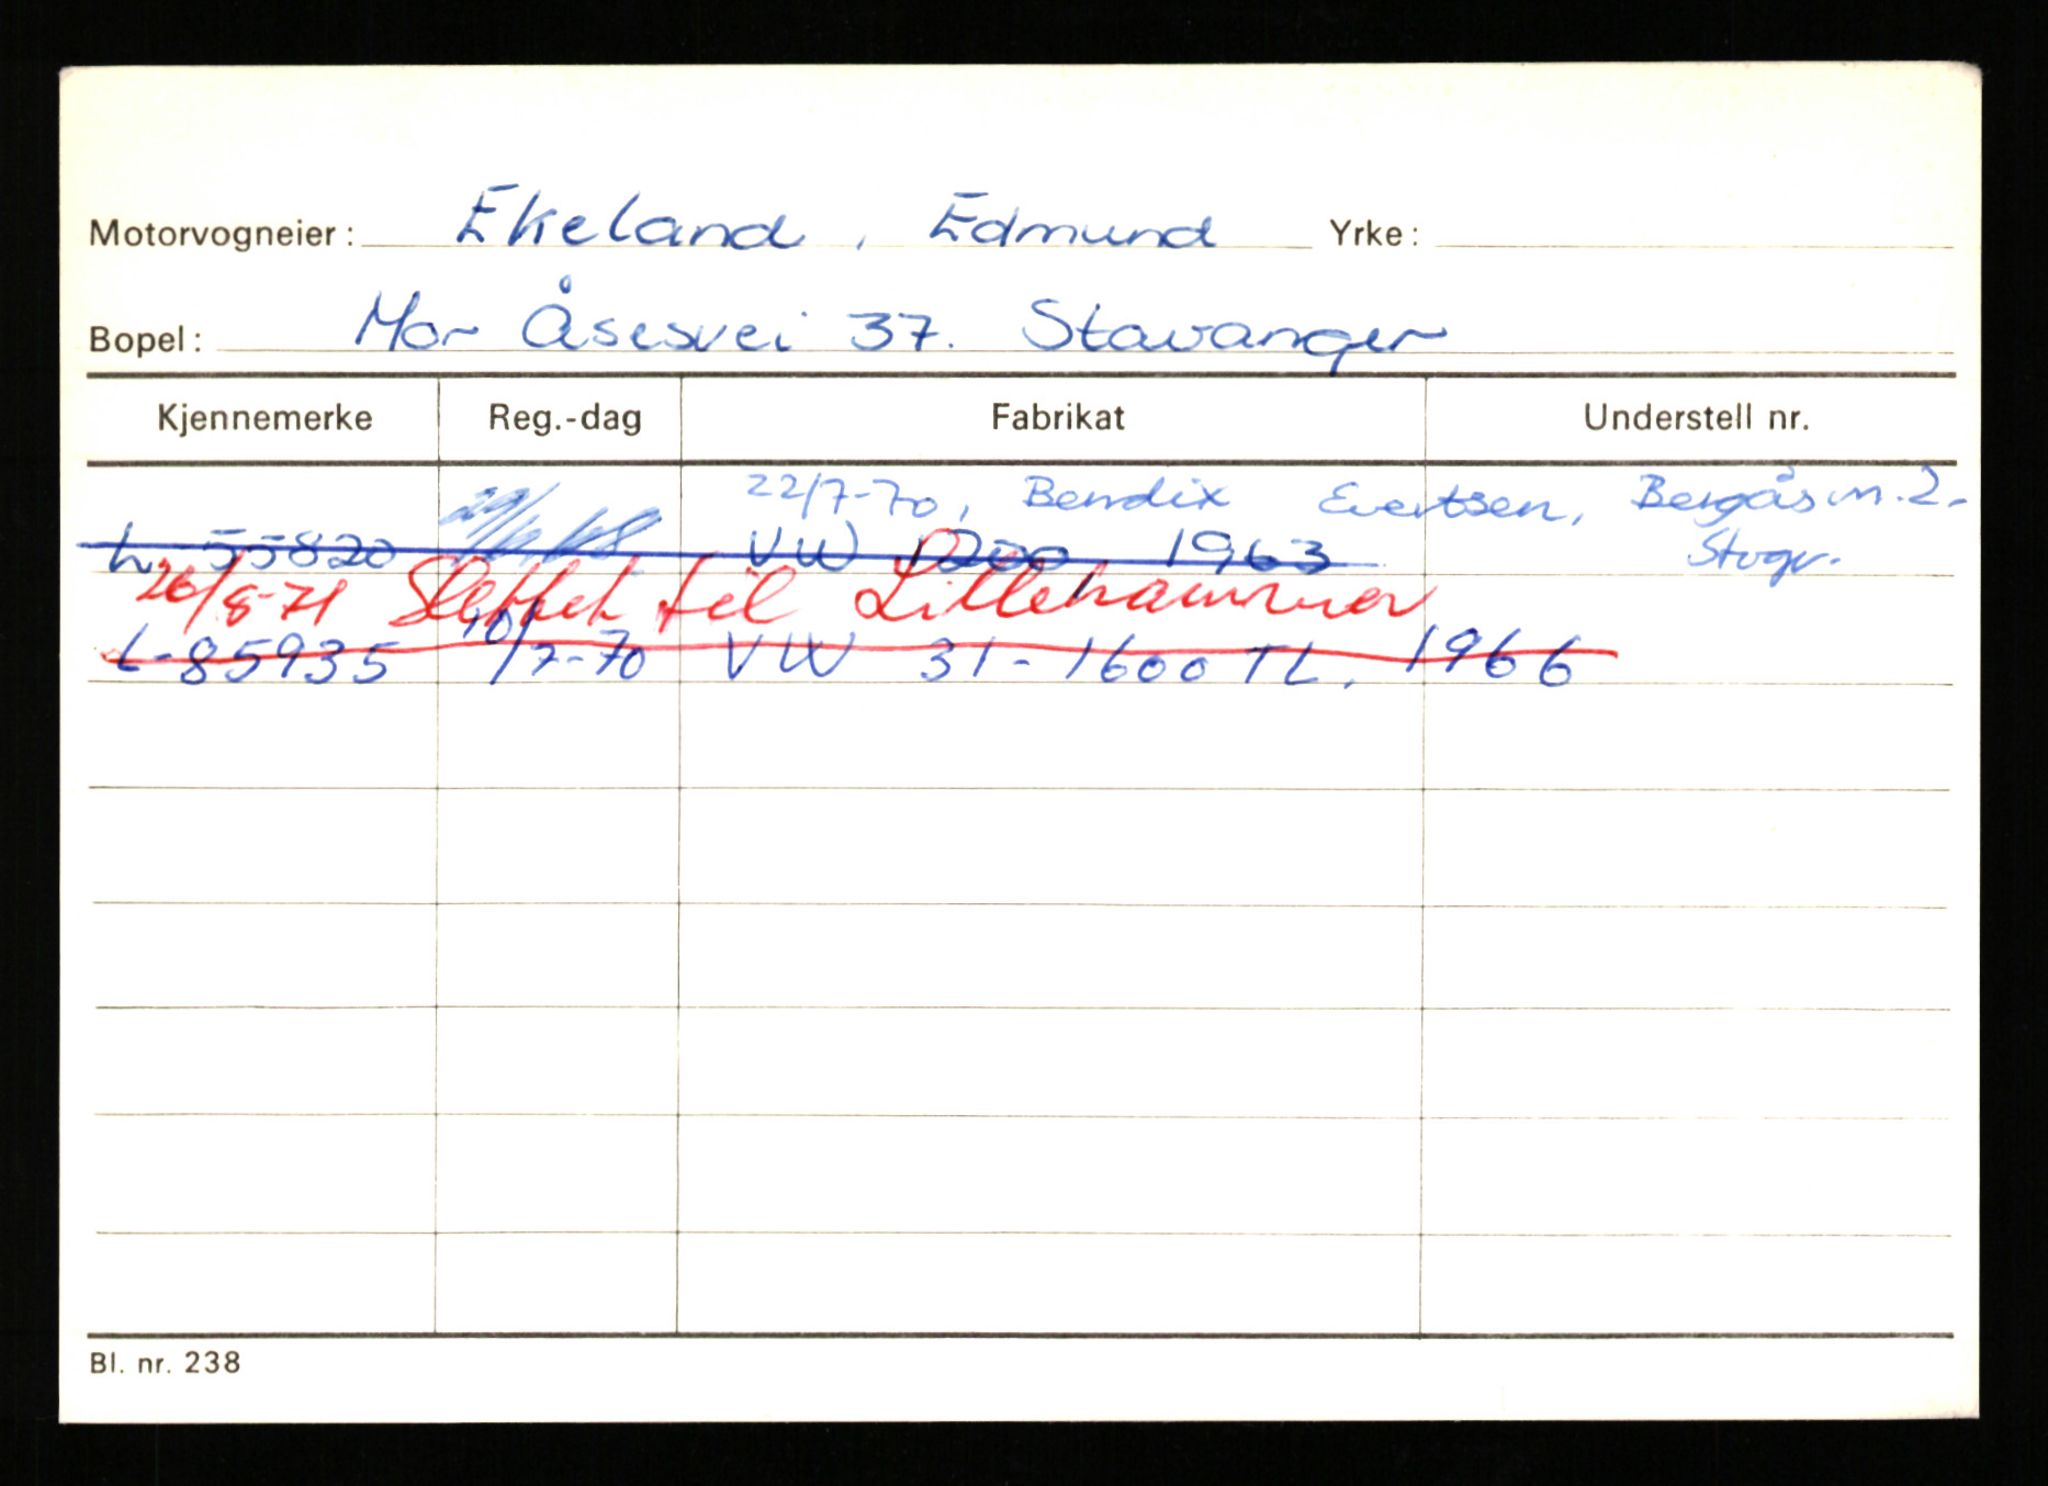 Motorvogneier: Ekeland, Edmund Yrke:
Bopel: Mor Åsesvei 37. Stavanger
Kjennemerke Reg.-dag Fabrikat Understell nr.
22/7-70, Bendix Evertsen, Bergåsm. 2.
L-55820 VW 1200 1963 Stvgr.
26/8-71 Slettet til Lillehammer
L-85935 10/7-70 VW 31-1600 TL. 1966
Bl. nr. 238